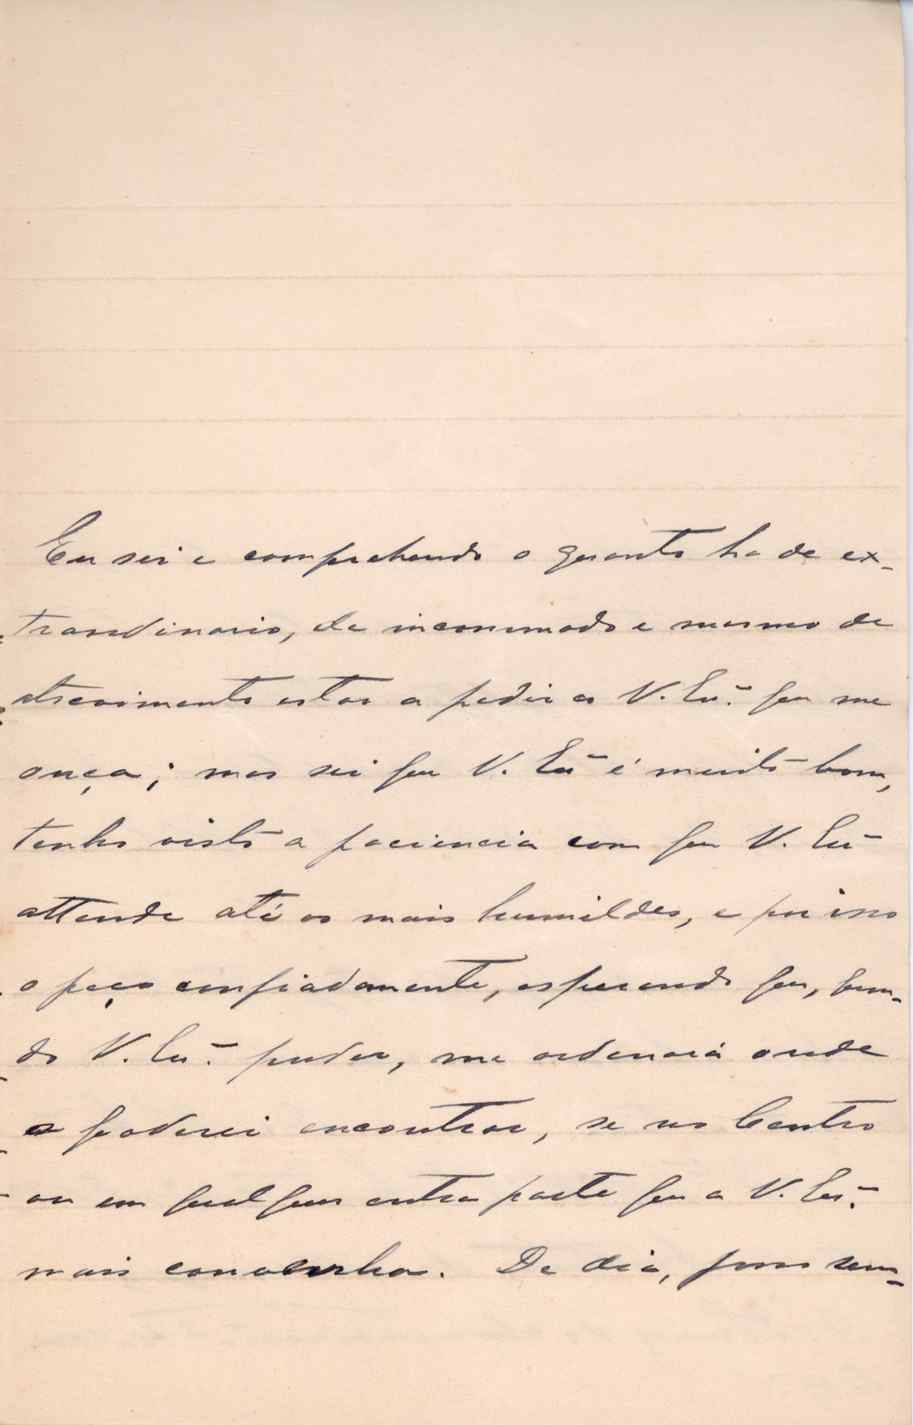 Eu sei e comprehendo o quanto ha de ex-
traordinario, de incommodo e mesmo de
atrevimento estar a pedir a V. Exª. que me
ouça; mas sei que V. Exª é muito bom,
tenho visto a paciencia com que V. Exª
attende até os mais humildes, e por isso
o peço confiadamente, esperando que, quan-
do V. Exª. puder, me ordenará onde
o poderei encontrar, se no Centro
ou em qualquer outra parte que a V. Exª.
mais convenha. De dia, posso sem-